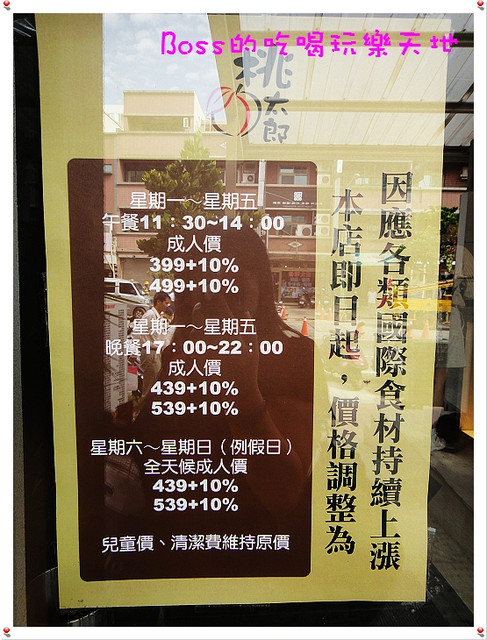 Boss的吃喝玩樂天地
桃太郎
因應各類國際食材持續上漲
本店即日起，價格調整為
星期一～星期五
午餐11：30~14：00
成人價
399+10%
499+10%
星期一～星期五
晚餐17：00~22：00
成人價
439+10%
539+10%
星期六～星期日（例假日）
全天候成人價
439+10%
539+10%
兒童價、清潔費維持原價